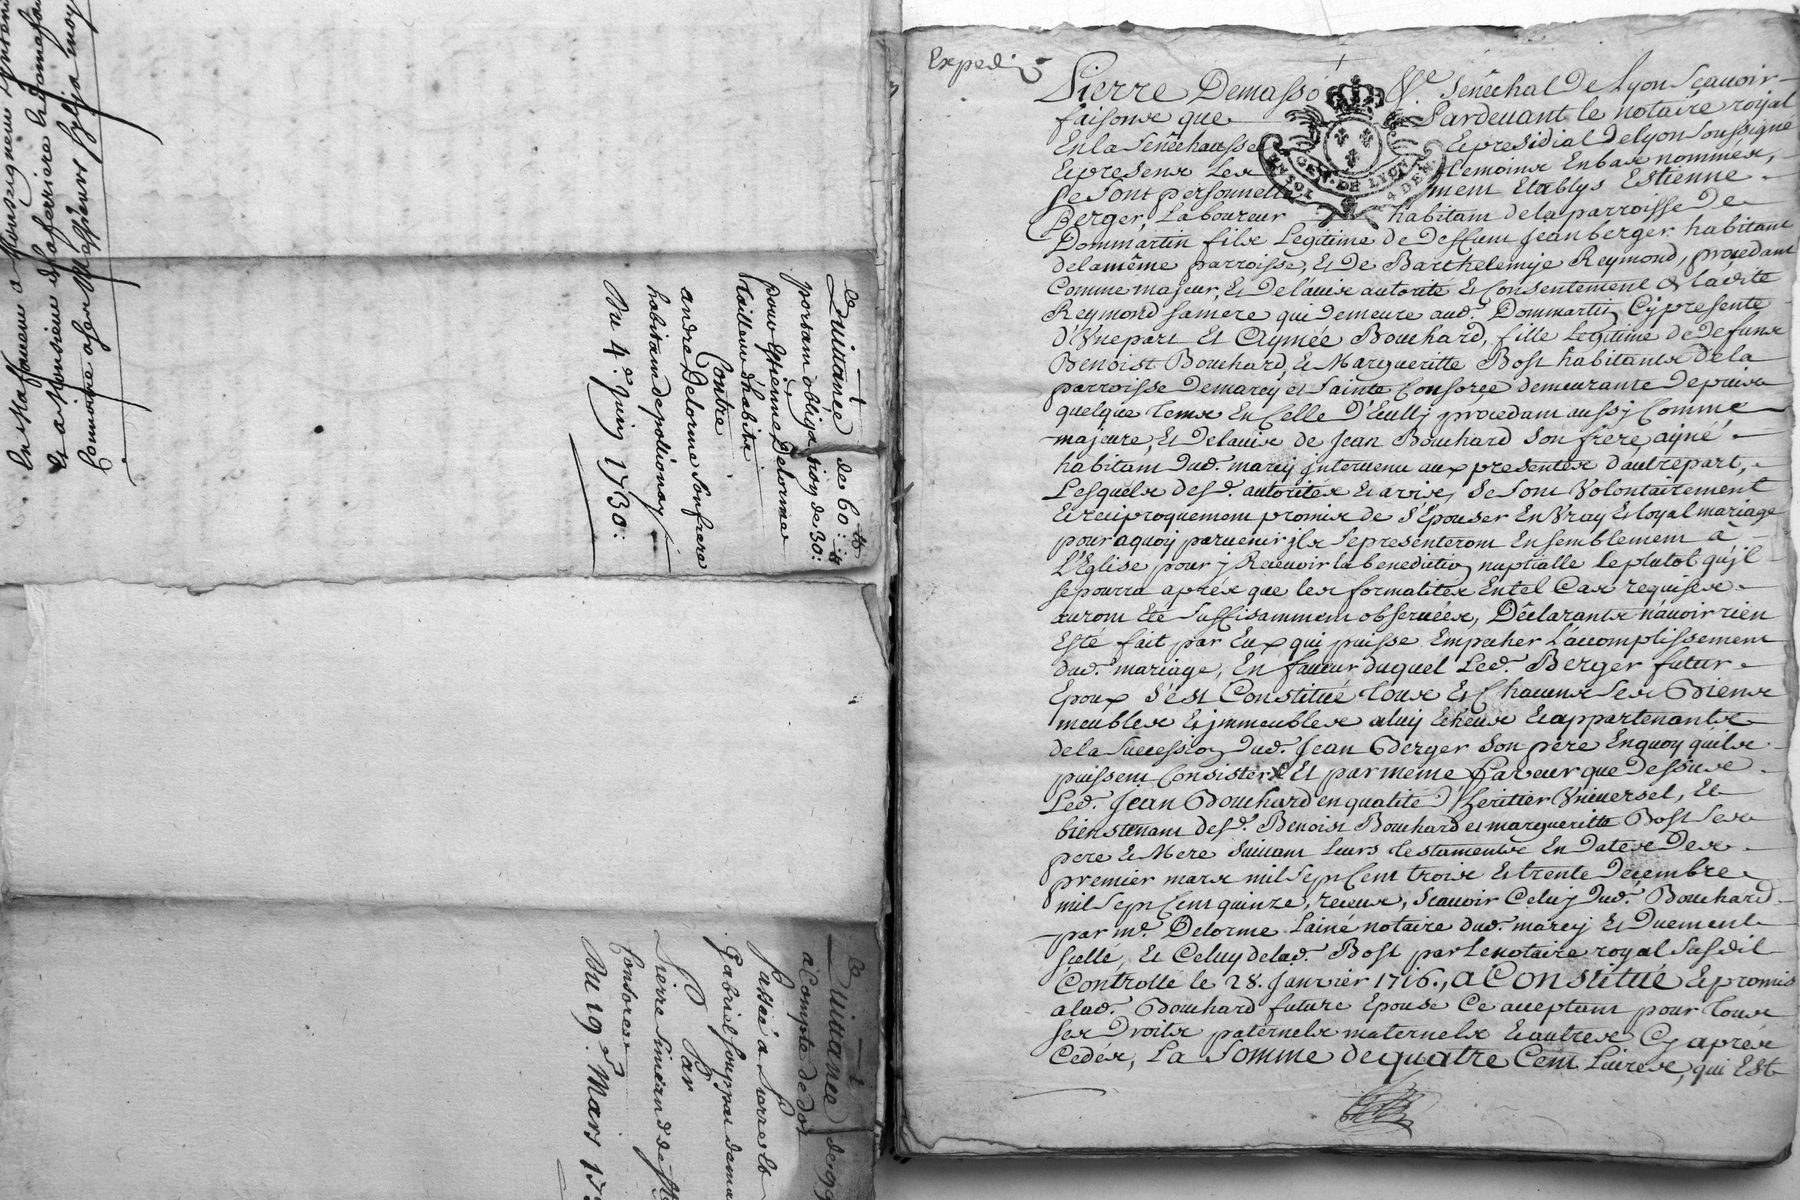 En Sta faveur a Monseigneur
Et a Monsieur de laferriere
Commaire a
de Quittance de 60: lts
portant obligation de 30: lt
pour Estienne Delorme
tailleur d'habits
Contre
andre Delorme son frere
habitant de pollionay
Du 4.e Juin 1730:
de Quittance de 99
a Compte de dot
Passée a
Gabriel
Par
Pierre Simeand de Ste
Consorce
Du 19.e Mars 17
Expedié
Pierre Demasso &c. Senéchal De Lyon Scavoir
faisons que Pardevant le notaire royal
En la Senéchaussée Et presidial De Lyon Soussigné
Et presens Les temoins En bas nommes,
Se Sont personnellement Etablys Estienne
Berger, Laboureur habitant de la parroisse De
Dommartin fils Legitime de Deffunt Jean berger habitant
de la même parroisse, Et De Barthelemye Reymond, procedant
Comme majeur, Et De l'avis autorité Et Consentement De ladite
Reymond sa mere qui demeure aud. Dommartin Cy presente
D'Une part Et Aymée Bouchard, fille Legitime de defunt
Benoist Bouchard, Et Margueritte Bost habitants de la
parroisse de marcy et Sainte Consorce demeurante Depuis
quelque tems En Celle D'Eully procedant aussy Comme
majeure, Et De lavis de Jean Bouchard Son frere ayné
habitant dud. marcy intervenu aux presentes d'autre part,
Lesquels desd. autorités Et avis, Se Sont Volontairement
Et reciproquement promis de S'Epouser En Vray Et loyal mariage
pour a quoy parvenir ils Se presenteront Ensemblement à
L'Eglise pour y Recevoir la benediction nuptialle Le plutot qu'jl
Se pourra aprés que les formalités En tel Cas requises
auront Eté Suffisamment observées, Déclarants n'avoir rien
Esté fait par Eux qui puisse Empecher L'accomplissement
dud. mariage, En faveur duquel Led. Berger futur
Epoux S'est Constitué tous Et Chacuns Ses Biens
meubles Et jmmeubles a luy Echeus Et appartenants
de la Succession Dud. Jean Berger Son pere En quoy qu'ils
puissent Consister, Et par même faveur que Dessus
Led. Jean Bouchard en qualité D'heritier Universel, Et
bienstenant desd. Benoist Bouchard et margueritte Bost Ses
pere Et Mere Suivant Leurs testaments En Dates Des
premier mars mil Sept Cent trois Et trente Decembre
mil Sept Cent quinze, receus, Scavoir Celuy Dud. Bouchard
par me. Delorme Lainé notaire dud. marcy Et Duement
Scellé, Et Celuy delad. Bost par Le notaire royal Susdit
Controllé le 28. Janvier 1716., a Constitué Et promis
a lad. Bouchard future Epouse Ce acceptant pour tous
Ses Droits paternels maternels Et autres Cy aprés
Cedés, La Somme de quatre Cent Livres, qui Est
GEN. DE LYON
4 DEN.